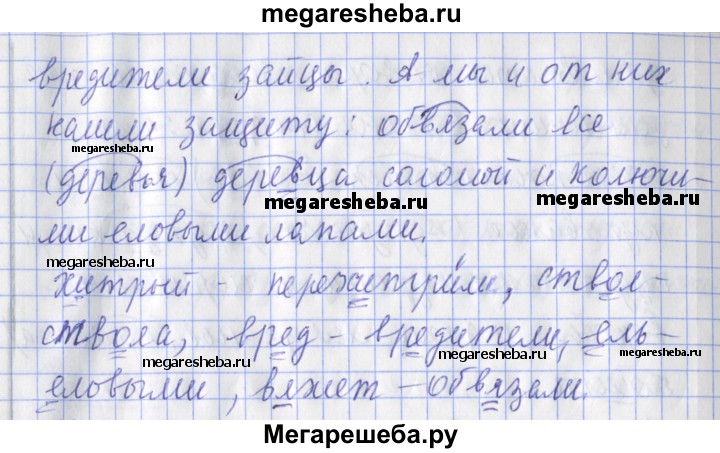 megaresheba.ru
вредители зайцы. А мы и от них
megaresheba.ru
нашли защиту: обвязали все
megaresheba.ru
(деревья) деревца соломой и колючи-
megaresheba.ru
megaresheba.ru
ми еловыми лапами.
megaresheba.ru
Хитрый - перехитрили, ствол -
ствола, вред - вредители, ель -
megaresheba.ru
megaresheba.ru
еловыми, вяжет - обвязали.
Мегарешеба.ру